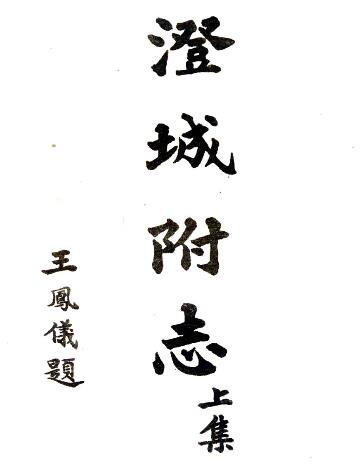 澄城附志
上集
王鳳儀題